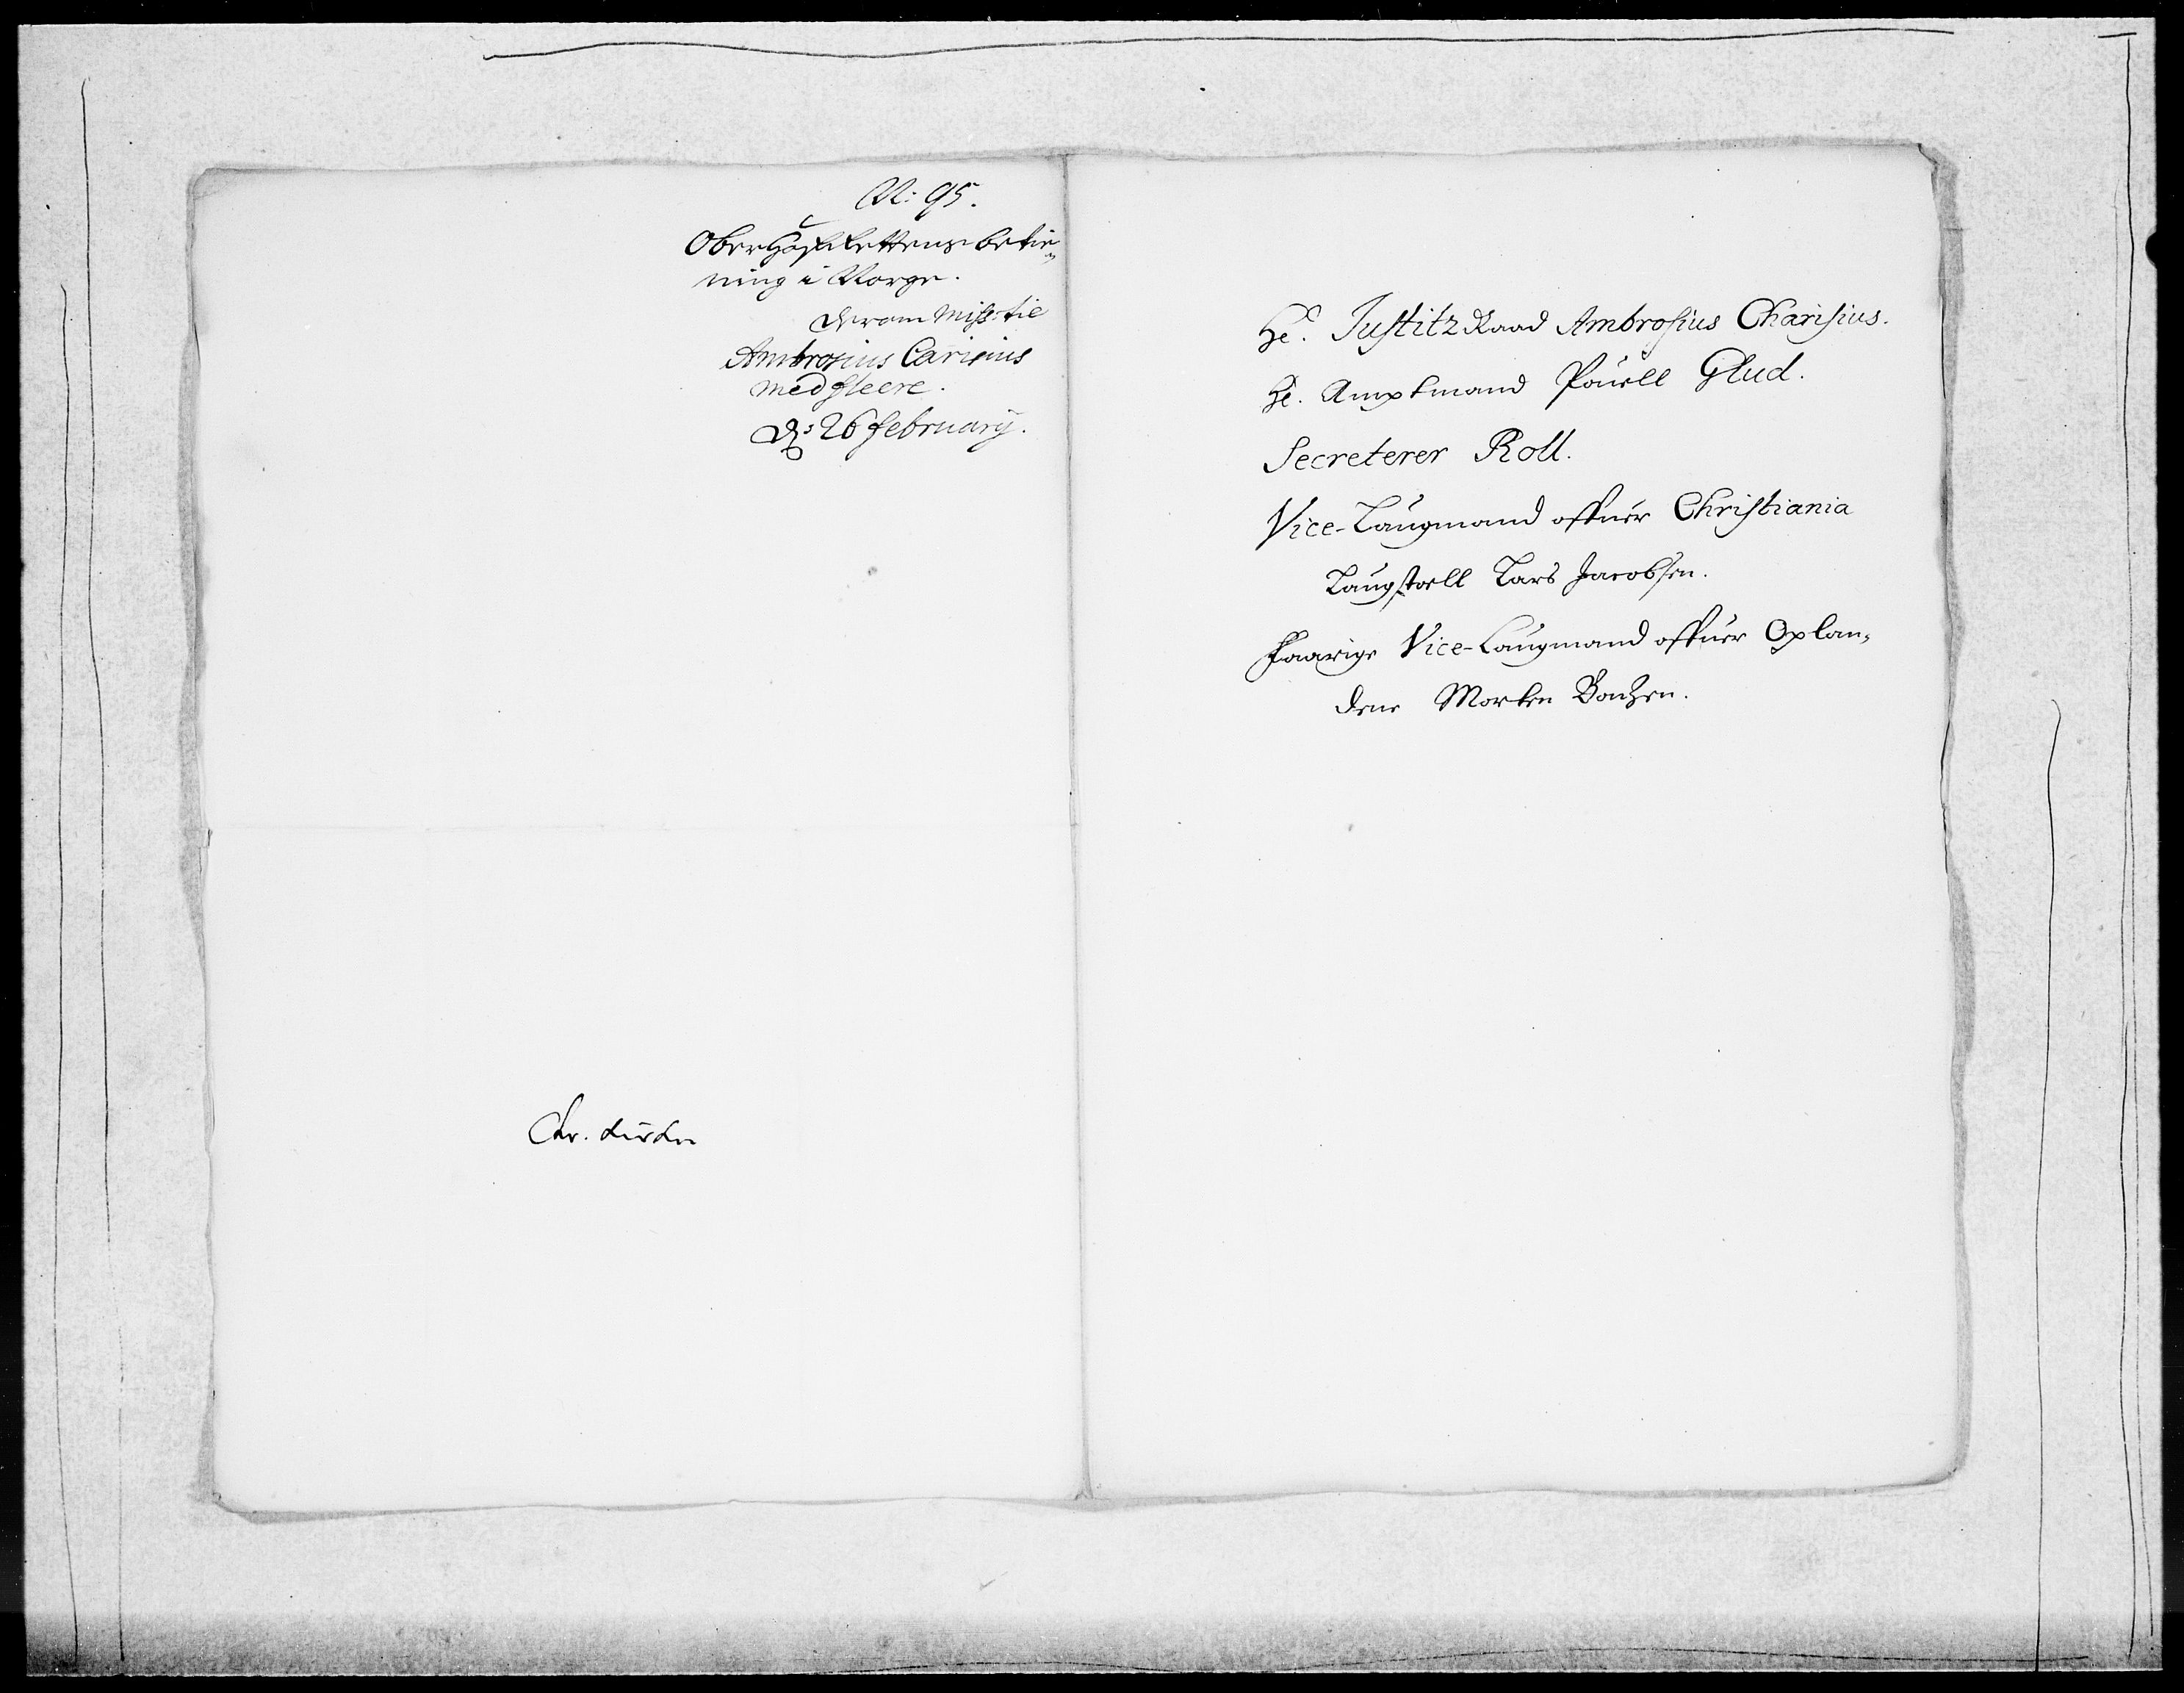 N: 95.
Ober Hoffrettens betie¬
ning i Norge.
Derom Miss: til
Ambrosius Carisius
med fleere.
D: 26 february.
He. Justitz Raad Ambrosius Charisius.
He. Amptmand Pouell Glud.
Secreterer Roll.
Vice-Laugmand offuer Christiania
Laugstoell Lars Jacobsen.
Forrige Vice-Laugmand offuer Oplan¬
dene Morten